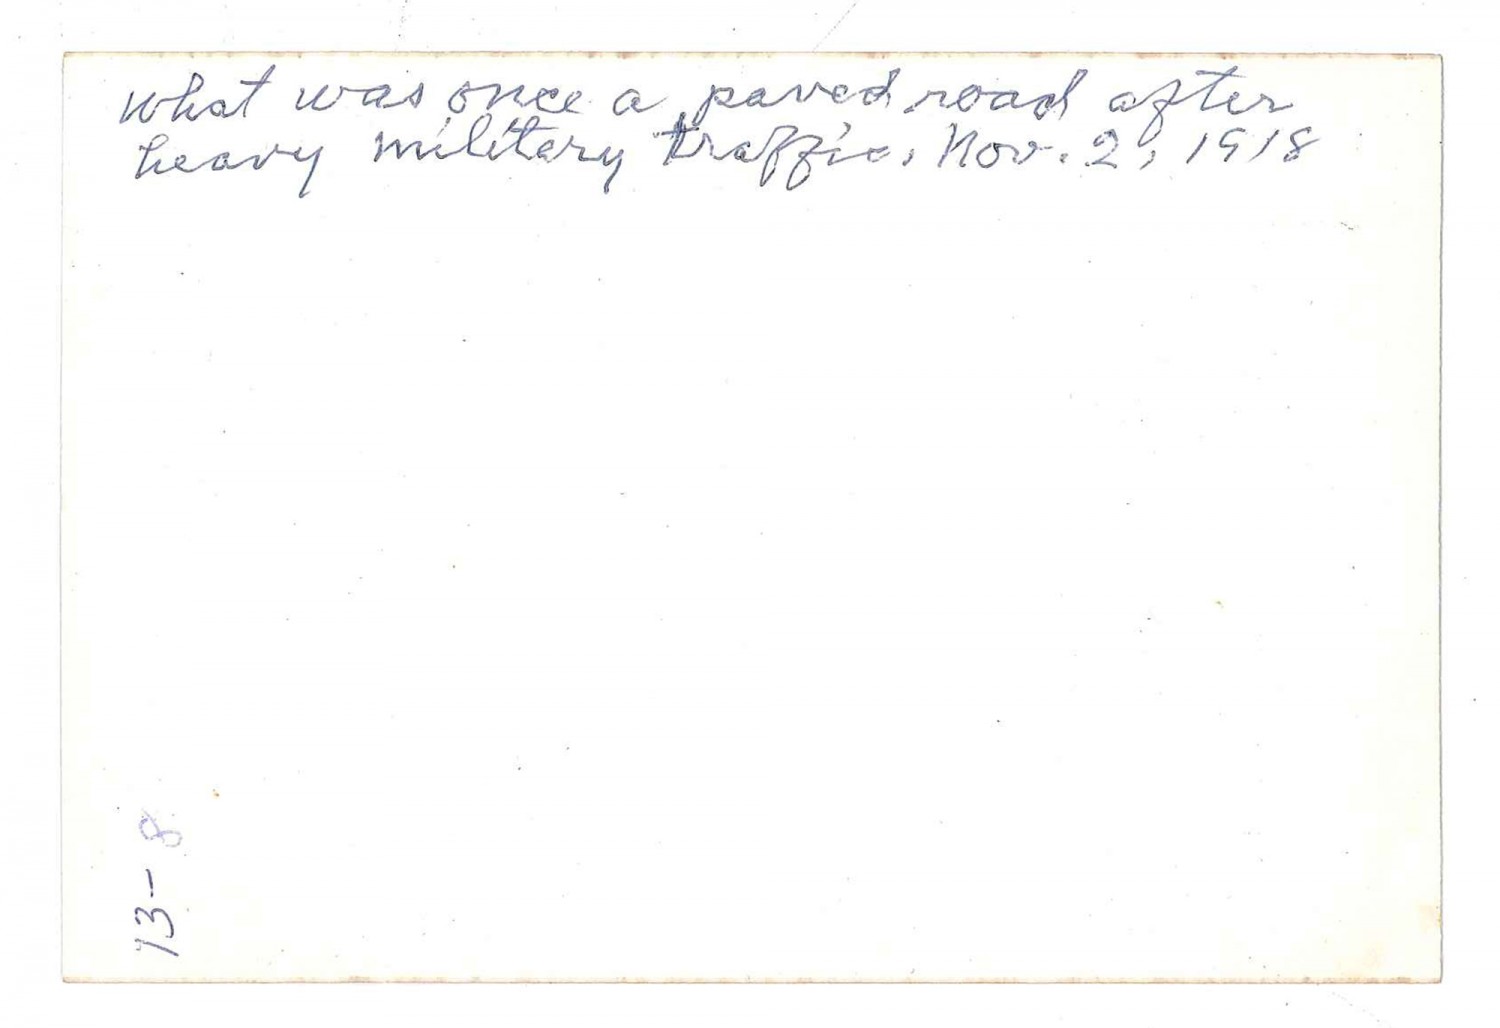 what was once a paved road after
heavy military traffic. Nov. 2, 1918
73-8